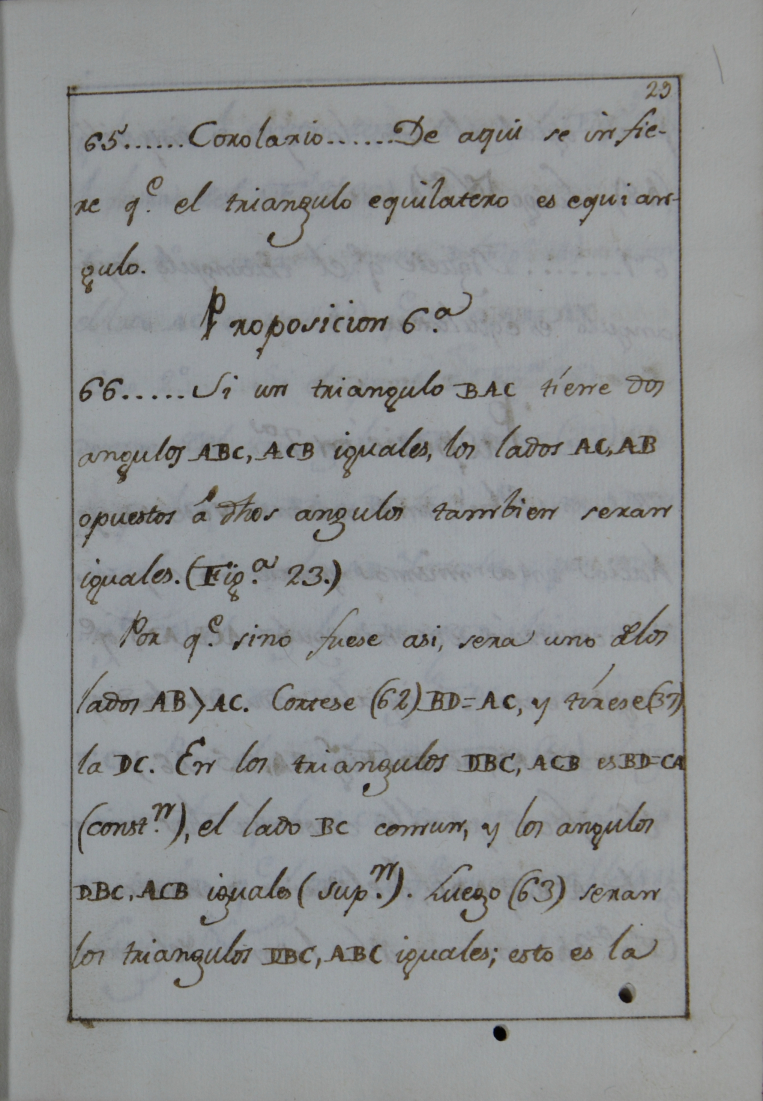 29
65......Corolario......De aqui se infie-
re q.e el triangulo equilatero es equian-
gulo.
Proposicion 6.a
66.....Si un triangulo BAC tiene dos
angulos ABC, ACB iguales, los lados AC, AB
opuestos á dhos angulos tambien seran
iguales. (Fig.a 23.)
Por q.e sino fuese asi, sera uno delos
lados AB > AC. Cortese (62) BD=AC, y tírese (37)
la DC. En los triangulos DBC, ACB es BD=CA
(const.n), el lado BC comun, y los angulos
DBC, ACB iguales (sup.n). Luego (63) seran
los triangulos DBC, ABC iguales; esto es la